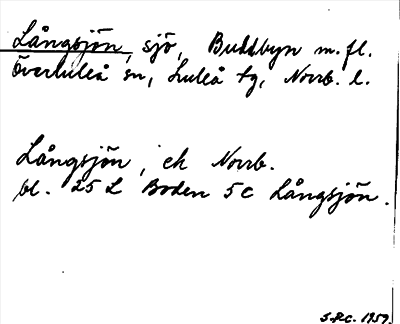 Långsjön, sjö, Buddbyn m.fl.
Överluleå sn, Luleå tg, Norrb. l.
Långsjön, ek Norrb.
bl. 25 L Boden 5 c Långsjön.
S.P.C. 1959.